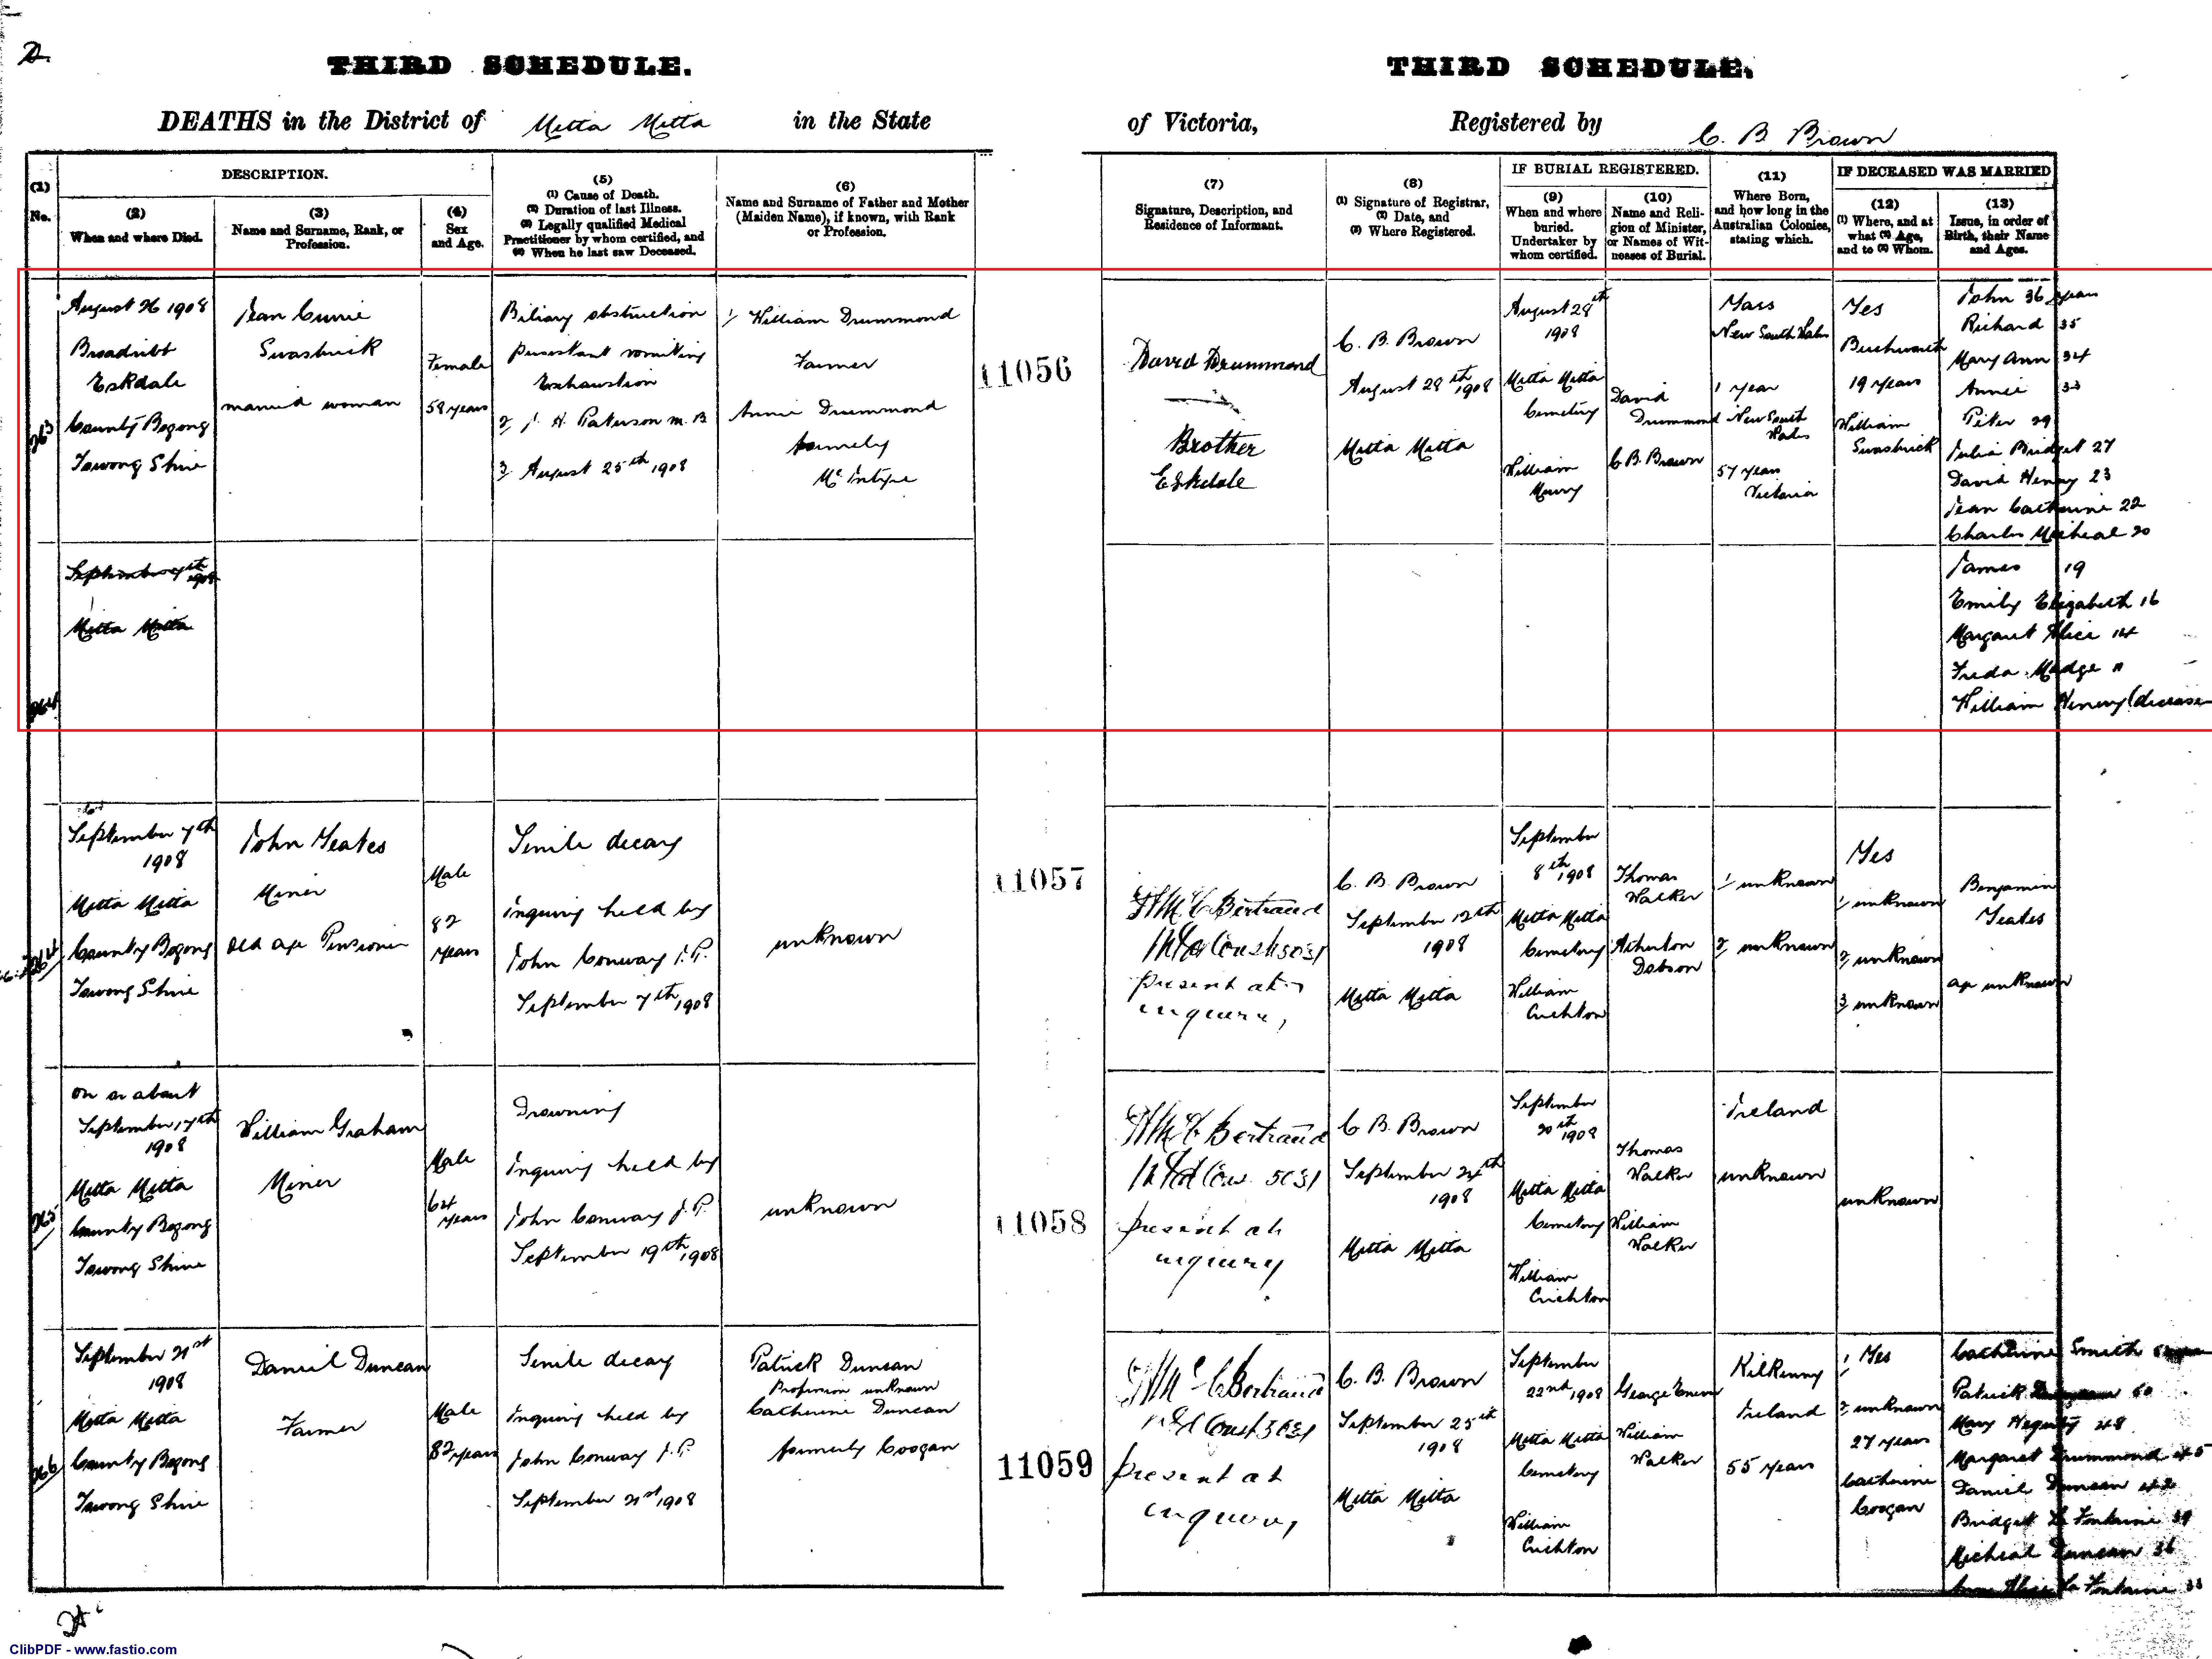 2.
THIRD SCHEDULE.
THIRD SCHEDULE.
DEATHS in the District of Mitta Mitta in the State
of Victoria, Registered by C. B. Brown
(1)
No.
DESCRIPTION.
(2)
When and where Died.
(3)
Name and Surname, Rank, or
Profession.
(4)
Sex
and Age.
(5)
(1) Cause of Death.
(2) Duration of last Illness.
(3) Legally qualified Medical
Practitioner by whom certified, and
(4) When he last saw Deceased.
(6)
Name and Surname of Father and Mother
(Maiden Name), if known, with Rank
or Profession.
(7)
Signature, Description, and
Residence of Informant.
(8)
(1) Signature of Registrar,
(2) Date, and
(3) Where Registered.
IF BURIAL REGISTERED.
(9)
When and where
buried.
Undertaker by
whom certified.
(10)
Name and Reli-
gion of Minister,
or Names of Wit-
nesses of Burial.
(11)
Where Born,
and how long in the
Australian Colonies,
stating which.
IF DECEASED WAS MARRIED
(12)
(1) Where, and at
what (2) Age,
and to (3) Whom.
(13)
Issue, in order of
Birth, their Names
and Ages.
263
August 26 1908
Broadribt
Eskdale
County Bogong
Towong Shire
Jean Currie
Swasbrick
married woman
Female
58 years
Biliary obstruction
persistant vomiting
Exhaustion
2/ J. H. Paterson M.B
3/ August 25th 1908
1/ William Drummond
Farmer
Annie Drummond
formerly
McIntyre
11056
David Drummond
Brother
Eskdale
C. B. Brown
August 28th 1908
Mitta Mitta
August 28th
1908
Mitta Mitta
Cemetery
William
David
Drummond
C B. Brown
Yass
New South Wales
1 year
New South
Wales
57 years
Victoria
Yes
Beechworth
19 years
William
Swasbrick
John 36 years
Richard 35
Mary Ann 34
Annie 33
Peter 29
Julia Bridget 27
David Henry 23
Jean Catherine 22
Charles Micheal 20
James 19
Emily Elizabeth 16
Margaret Alice 14
Freda Madge 11
William Henry (deceased
264
September 7th
1908
Mitta Mitta
264
September 7th
1908
Mitta Mitta
County Bogong
Towong Shire
John Yeates
Miner
Old age Pensioner
Male
82
years
Senile decay
Inquiry held by
John Conway J.P.
September 7th 1908
unknown
11057
Bertrand
present at
inquiry
C. B. Brown
September 12th
1908
Mitta Mitta
September
8th 1908
Mitta Mitta
Cemetery
William
Crichton
Thomas
Walker
Atherton
Dobson
1/ unknown
2/ unknown
Yes
1/ unknown
2/ unknown
3/ unknown
Benjamin
Yeates
age unknown
265
on or about
September 17th
1908
Mitta Mitta
County Bogong
Towong Shire
William Graham
Miner
Male
64
years
Drowning
Inquiry held by
John Conway J.P.
September 19th 1908
unknown
11058
Bertrand
present at
inquiry
C B. Brown
September 24th
1908
Mitta Mitta
September
20th 1908
Mitta Mitta
Cemetery
William
Crichton
Thomas
Walker
William
Walker
Ireland
unknown
unknown
266
September 21st
1908
Mitta Mitta
County Bogong
Towong Shire
Daniel Duncan
Farmer
Male
82 years
Senile decay
Inquiry held by
John Conway J.P.
September 21st 1908
Patrick Duncan
Profession unknown
Catherine Duncan
formerly Coogan
11059
Bertrand
present at
inquiry
C. B. Brown
September 25th
1908
Mitta Mitta
September
22nd 1908
Mitta Mitta
Cemetery
William
Crichton
George
William
Walker
Kilkenny
Ireland
55 years
1/ Yes
2/ unknown
27 years
Catherine
Coogan
Catherine Smith
Patrick 50
Mary Hegarty 48
Margaret Drummond 45
Daniel Duncan 42
Bridget La Fontaine 39
Micheal Duncan 36
La Fontaine 33
ClibPDF - www.fastio.com